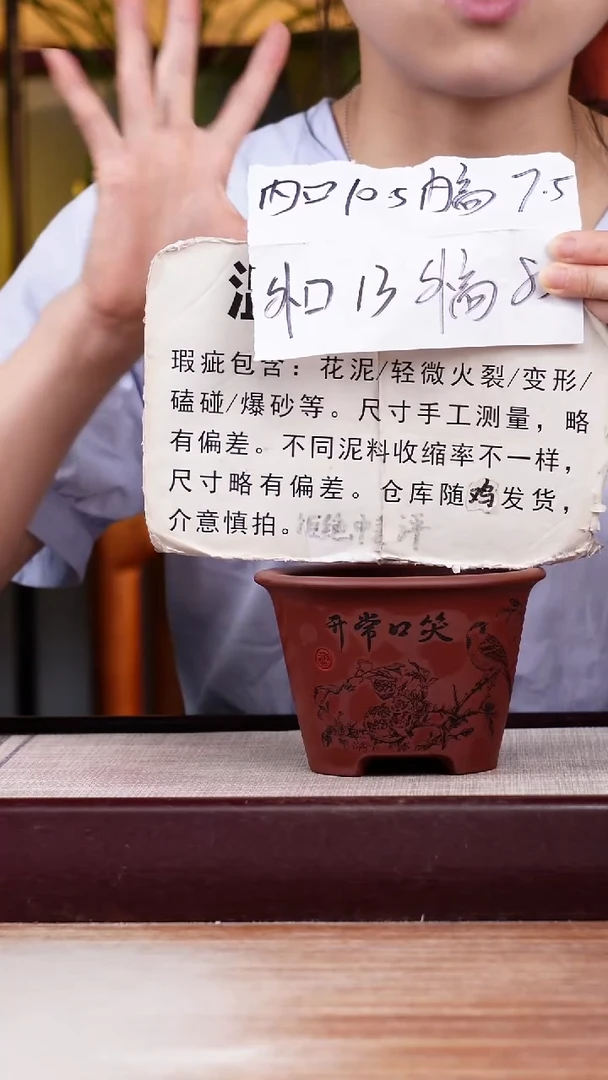 内口10.5内高7.5
外口13外高8
瑕疵包含：花泥/轻微火裂/变形/
磕碰/爆砂等。尺寸手工测量，略
有偏差。不同泥料收缩率不一样，
尺寸略有偏差。仓库随鸡发货，
介意慎拍。拒绝中
开常口笑